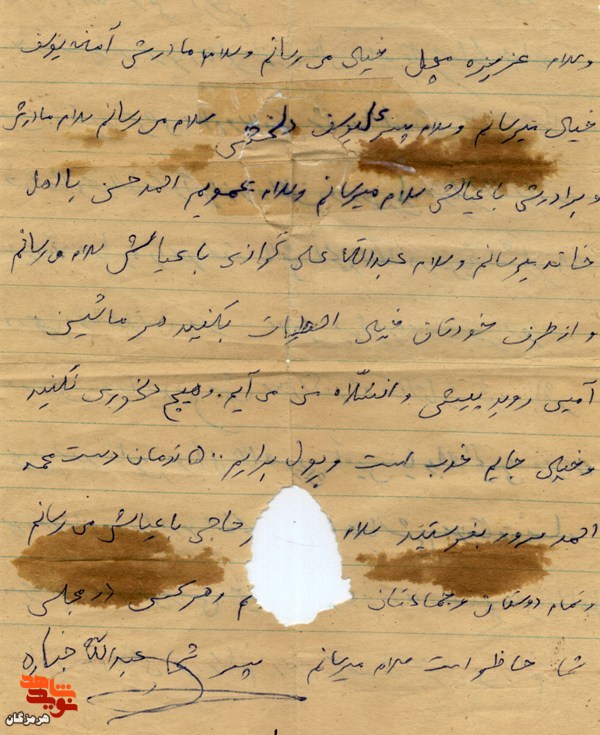 وسلام عزیزه مچل خیلی می رسانم وسلام مادرش آمنه یوسف
خیلی میرسانم وسلام پسر علی یوسف سلام می رسانم سلام مادرش
و برادرش با عیالش سلام میرسانم وسلام عمویم احمد حسن با اهل
خانه میرسانم وسلام عبدالله علی با عیالش سلام می رسانم
و از طرف خودتان خیلی بکنید
و انشاالله من می آیم. و هیچ دلخوری نکنید
و خیلی جایم خوب است و پول برایم ۵۰۰ تومان دست محمد
احمد سرور بفرستید سلام حاجی با عیالش می رسانم
و تمام دوستان و جماعتان و هر کسی در مجلس
شما حاظر است سلام میرسانم پسر شما عبدالله
شاهد
نوید
هرمزگان